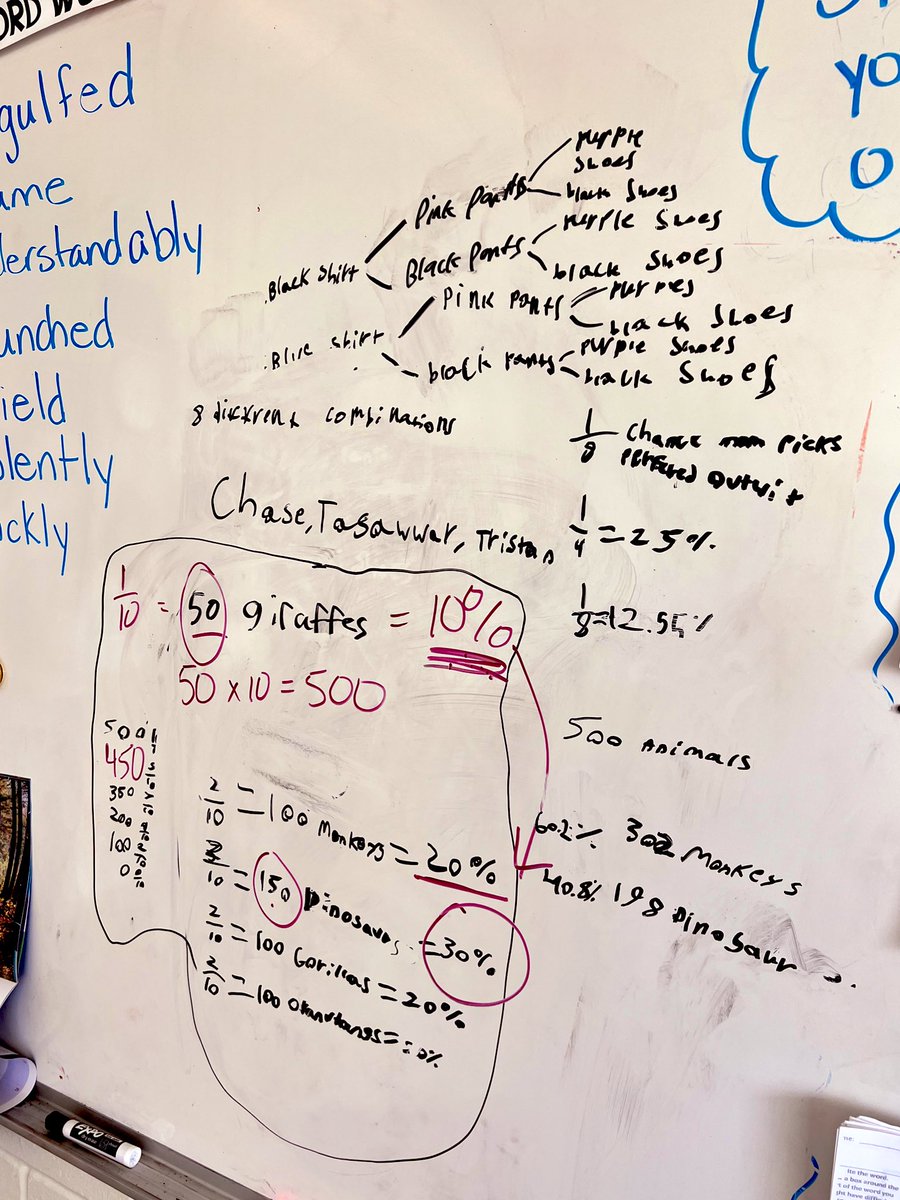 ORD WO
gulfed
ame
derstandably
unched
ield
olently
ickly
YO
O
Purple
Shoes
Pink Pants
black Shoes
Purple Shoes
Black Shirt
Black Pants
black Shoes
Pink Pants
Purples
black Shoes
Blue Shirt
Purple Shoes
black Pants
black Shoes
8 dickrent combinations
1/8 Chance mom Picks
Perfected Outfit
Chase, Tasawwar, Tristan
1/4 = 25%
1/8 = 12.55%
1/10 = 50 giraffes = 10%
50 x 10 = 500
500
450
350
200
100
0
500 Animals
2/10 = 100 Monkeys = 20%
3/10 = 150 Dinosaurs = 30%
2/10 = 100 Gorillas = 20%
2/10 = 100 Orangtangs =
60.2% 302 Monkeys
40.8% 198 Dinosaur
EXPO
me:
Its the word.
a box around the
t of the word you
ght have diffic